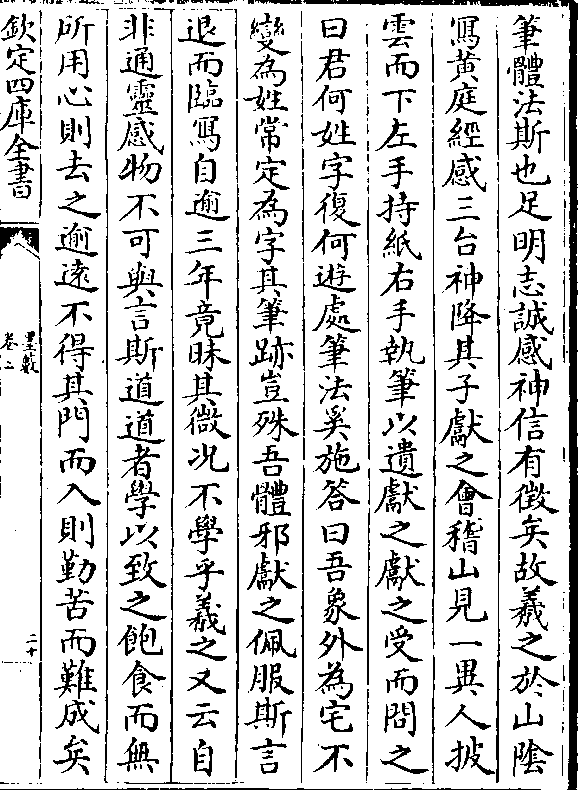 筆體法斯也足明志誠感神信有徴矣故羲之於山隂
寫黃庭經感三台神降其子獻之㑹稽山見一異人披
雲而下左手持紙右手執筆以遺獻之獻之受而問之
曰君何姓字復何遊處筆法奚施答曰吾象外為宅不
變為姓常定為字其筆跡豈殊吾體邪獻之佩服斯言
退而臨寫自逾三年竟昧其微况不學乎羲之又云自
非通靈感物不可與言斯道道者學以致之飽食而無
所用心則去之逾遠不得其門而入則勤苦而難成矣
欽定四庫全書
墨藪
卷上
二十